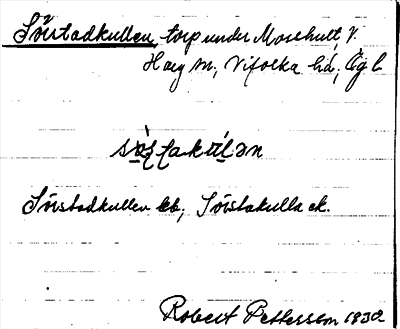 Sörstadkullen, torp under Moschult, V.
Harg sn, Vifolka hd, Ög l.
Sörstadkullen kb, Sörstakulla ek.
Robert Pettersson 1930